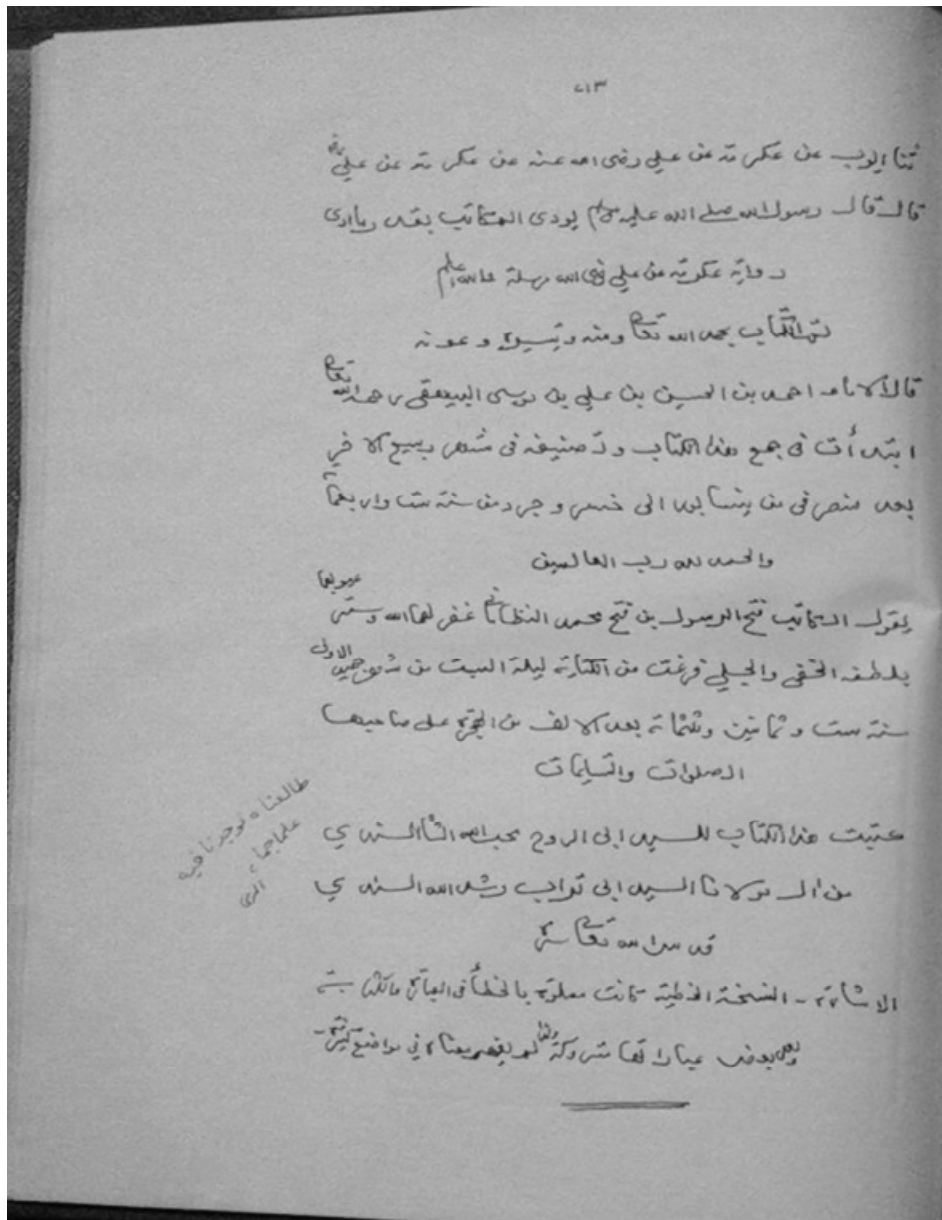 ٢١٣
ثنا ايوب عن عكرمة عن علي رضى الله عنه عن عكرمة عن علي
قال قال رسول الله صلى الله عليه وسلم يودى المكاتب بقدر ما ادى
رواية عكرمة عن علي رضى الله مرسلة والله اعلم
تم الكتاب بحمد الله تعالى ومنه وتيسيره وعونه
قال الامام احمد بن الحسين بن علي بن موسى البيهقي رحمه الله تعالى
ابتدأت في جمع هذا الكتاب وتصنيفه في شهر ربيع الاخر
بعد منصرفي من نيسابور الى خسروجرد من سنة ست واربعمائة
والحمد لله رب العالمين
يقول الكاتب فتح الرسول بن فتح محمد النظاماني غفر لهما الله وستر عيوبهما
بلطفه الخفي والجلي فرغت من الكتابة ليلة السبت من شهر جميدى الاولى
سنة ست وثمانين وثلثمائة بعد الالف من الهجرة على صاحبها
الصلوات والتسليمات
كتبت هذا الكتاب للسيد ابى الروح محب الله الشاه السندي
من ال مولانا السيد ابى تراب رشد الله السندي
قدس الله تعالى سره
الاشارة - النسخة الخطية كانت مملوة بالخطأ في العبارة
وبعض عباراتها متروكة لم يفهم معناه في مواضع كثيرة -
طالعناه فوجدنا فيه
علما جما